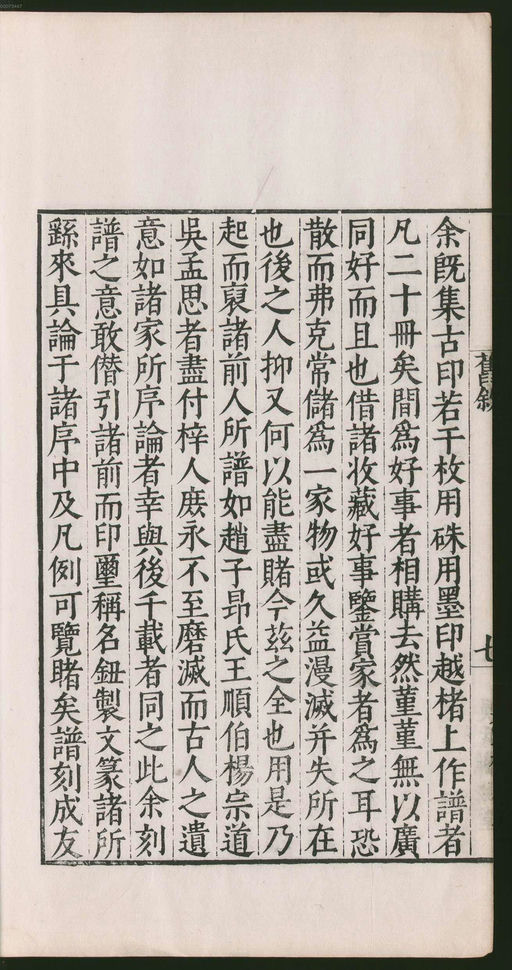 余旣集古印若干枚用硃用墨印越楮上作譜者
凡二十冊矣間爲好事者相購去然菫菫無以廣
同好而且也借諸收藏好事鑒賞家者爲之耳恐
散而弗克常儲爲一家物或久益漫滅并失所在
也後之人抑又何以能盡睹今兹之全也用是乃
起而裒諸前人所譜如趙子昻氏王順伯楊宗道
吳孟思者盡付梓人庻永不至磨滅而古人之遺
意如諸家所序論者幸與後千載者同之此余刻
譜之意敢僭引諸前而印璽稱名鈕製文篆諸所
繇來具論于諸序中及凡例可覽睹矣譜刻成友
舊敘
七
00073447